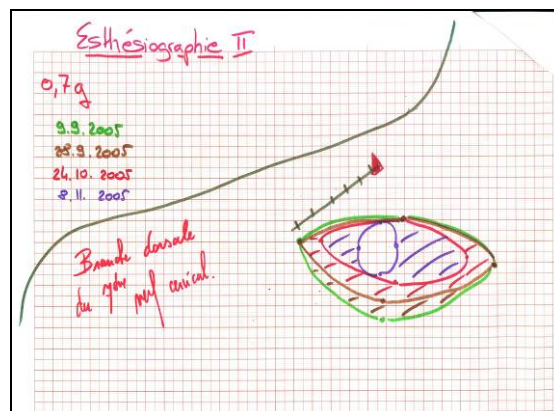 Esthésiographie II
0,7g
9.9.2005
28.9.2005
24.10.2005
8.11.2005
Branche dorsale
du 7ème nerf cervical.